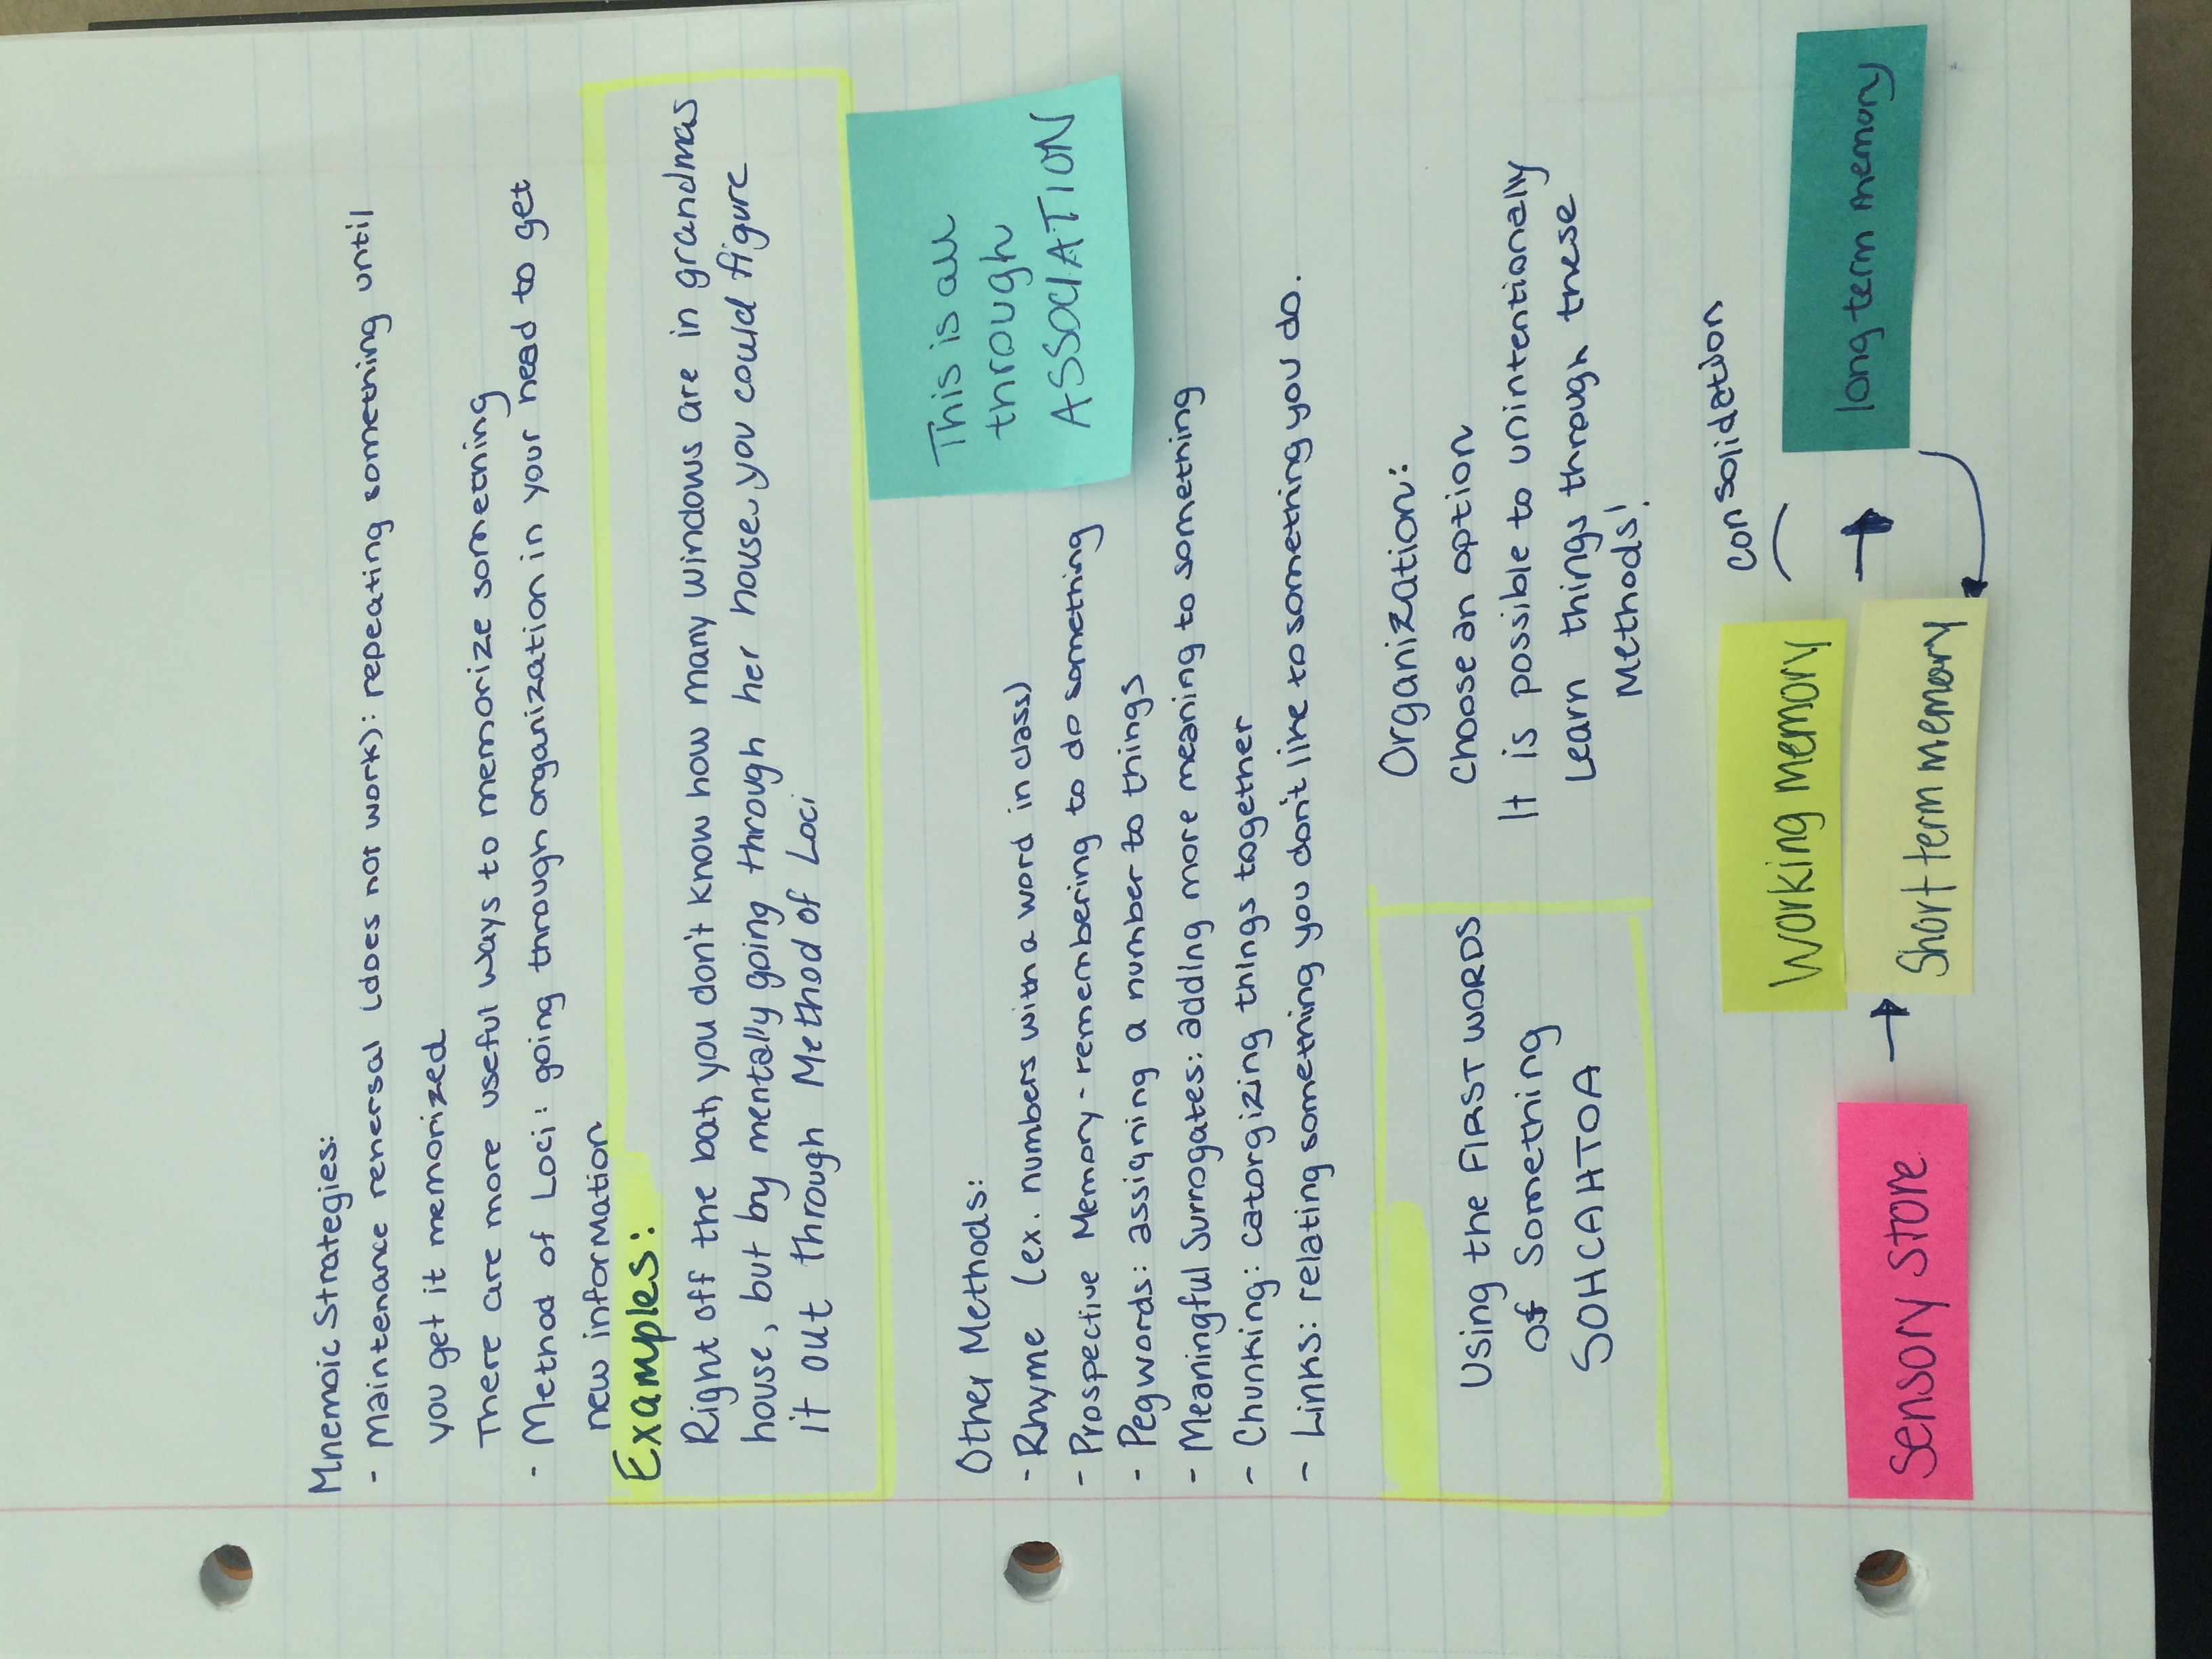 Mnemoic Strategies:
- Maintenance rehersal (does not work): repeating something until
you get it memorized
There are more useful ways to memorize something
- Method of Loci: going through organization in your head to get
new information
Examples:
Right off the bat, you don't know how many windows are in grandmas
house, but by mentally going through her house, you could figure
it out through Method of Loci
This is all
through
ASSOCIATION
Other Methods:
- Rhyme (ex. numbers with a word in class)
- Prospective Memory - remembering to do something
- Pegwords: assigning a number to things
- Meaningful Surrogates: adding more meaning to something
- Chunking: catorgizing things together
- Links: relating something you don't like to something you do.
Using the FIRST WORDS
of Something
SOHCAHTOA
Organization:
Choose an option
It is possible to unintentionally
Learn things through these
Methods!
consolidation
Sensory Store
Working memory
Short term memory
long term memory